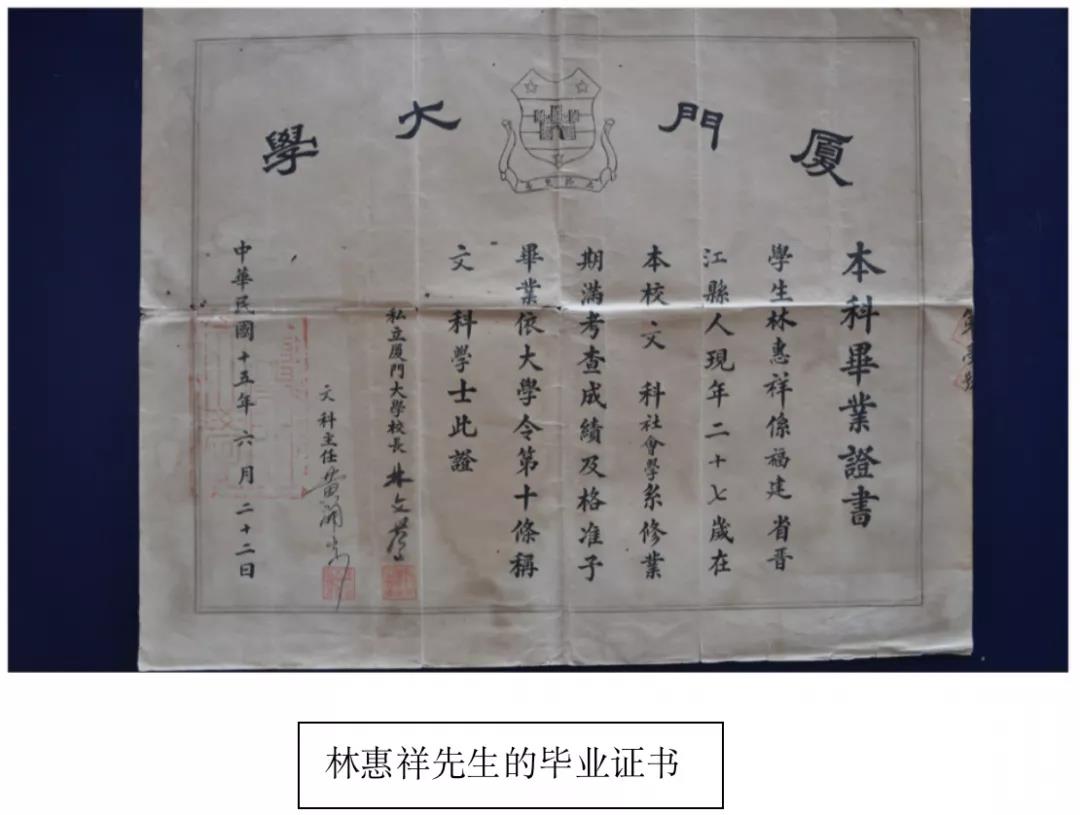 厦門大學
本科畢業證書
學生林惠祥係福建省晋
江縣人現年二十七歲在
本校文科社會學系修業
期滿考查成績及格准予
畢業依大學令第十條稱
文科學士此證
私立厦門大學校長 林文慶
文科主任
中華民國十五年六月二十二日
林惠祥先生的毕业证书